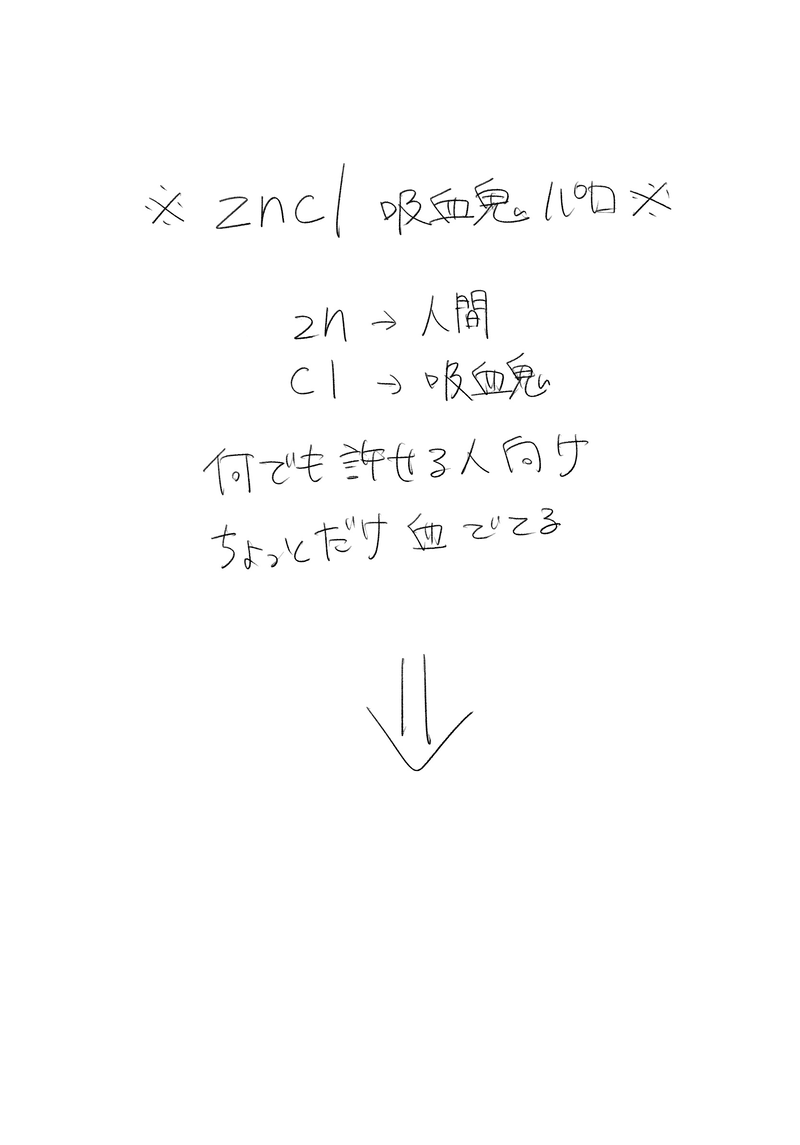 ※ zncl 吸血鬼パロ ※
zn → 人間
cl → 吸血鬼
何でも許せる人向け
ちょっとだけ血でてる